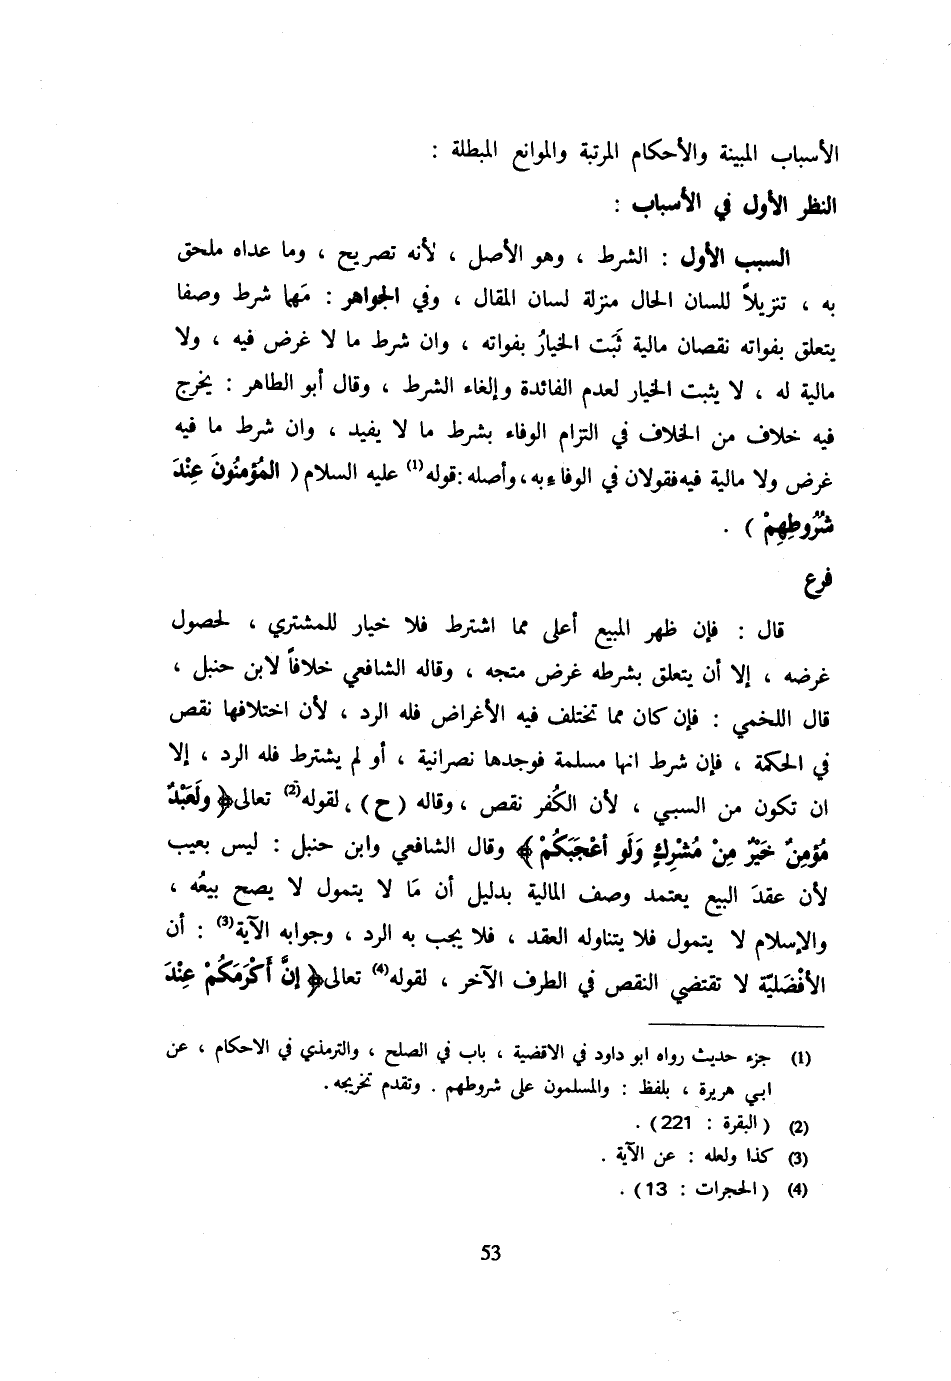 الأسباب المبينة والأحكام المرتبة والموانع المبطلة :
النظر الأول في الأسباب :
السبب الأول : الشرط ، وهو الأصل ، لأنه تصريح ، وما عداه ملحق
به ، تنزيلاً للسان الحال منزلة لسان المقال ، وفي الجواهر : مَهما شرط وصفا
يتعلق بفواته نقصان مالية ثَبت الخيارُ بفواته ، وان شرط ما لا غرض فيه ، ولا
مالية له ، لا يثبت الخيار لعدم الفائدة وإلغاء الشرط ، وقال أبو الطاهر : يخرج
فيه خلاف من الخلاف في التزام الوفاء بشرط ما لا يفيد ، وان شرط ما فيه
غرض ولا مالية فيه فقولان في الوفاء به، وأصله :قوله(1) عليه السلام ( المُؤمنُونَ عِنْدَ
شُرُوطِهِمْ ) .
فرع
قال : فإن ظهر المبيع أعلى مما اشترط فلا خيار للمشتري ، لحصول
غرضه ، إلا أن يتعلق بشرطه غرض متجه ، وقاله الشافعي خلافاً لابن حنبل ،
قال اللخمي : فإن كان مما تختلف فيه الأغراض فله الرد ، لأن اختلافها نقص
في الحكمة ، فإن شرط انها مسلمة فوجدها نصرانية ، أو لم يشترط فله الرد ، إلا
ان تكون من السبي ، لأن الكُفر نقص ، وقاله ( ح ) ، لقوله(2) تعالى﴿ ولَعَبْدٌ
مُؤمِنٌ خَيْرٌ مِنْ مُشْرِكٍ وَلَو أعْجَبَكُمْ ﴾ وقال الشافعي وابن حنبل : ليس بعيب
لأن عقدَ البيع يعتمد وصف المالية بدليل أن مَا لا يتمول لا يصح بيعُه ،
والإسلام لا يتمول فلا يتناوله العقد ، فلا يجب به الرد ، وجوابه الآية(3) : أن
الأفْضَليّة لا تقتضي النقص في الطرف الآخر ، لقوله(4) تعالى﴿ إنَّ أَكْرَمَكُمْ عِنْدَ
(1) جزء حديث رواه ابو داود في الاقضية ، باب في الصلح ، والترمذي في الاحكام ، عن
ابي هريرة ، بلفظ : والمسلمون على شروطهم . وتقدم تخريجه .
(2) ( البقرة : 221) .
(3) كذا ولعله : عن الآية .
(4) ( الحجرات : 13) .
53